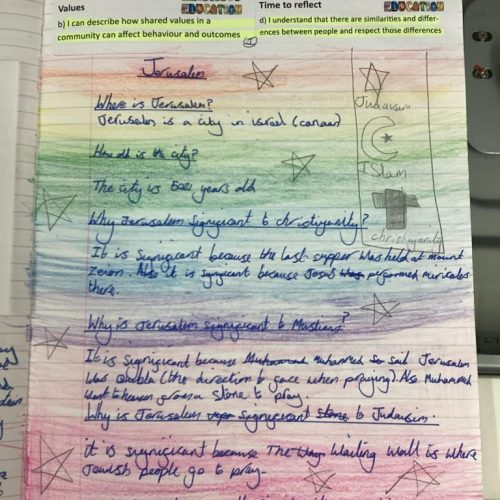 Values
Time to reflect
EDUCATION
EDUCATION
b) I can describe how shared values in a
community can affect behaviour and outcomes
d) I understand that there are similarities and differ-
ences between people and respect those differences
Jerusalem
Judaisim
ISlam
christiyanity
Where is Jerusalem?
Jerusalem is a city in israel (canaan)
How old is the city?
The city is years old
Why Jerusalem signigicant to christiyanity?
It is signigicant because the last supper was held at mount
Zeion. Also it is signigicant because Jesus performed muricales
there.
Why is Jerusalem signigicant to Muslims?
It is signigicant because Muhammed said Jerusalem
was (the direction to face when praying). Also Muhammed
went to heaven from a stone to pray.
Why is Jerusalem signigicant to Judaisim.
it is signigicant because The Wailing Wall is where
Jewish people go to pray.